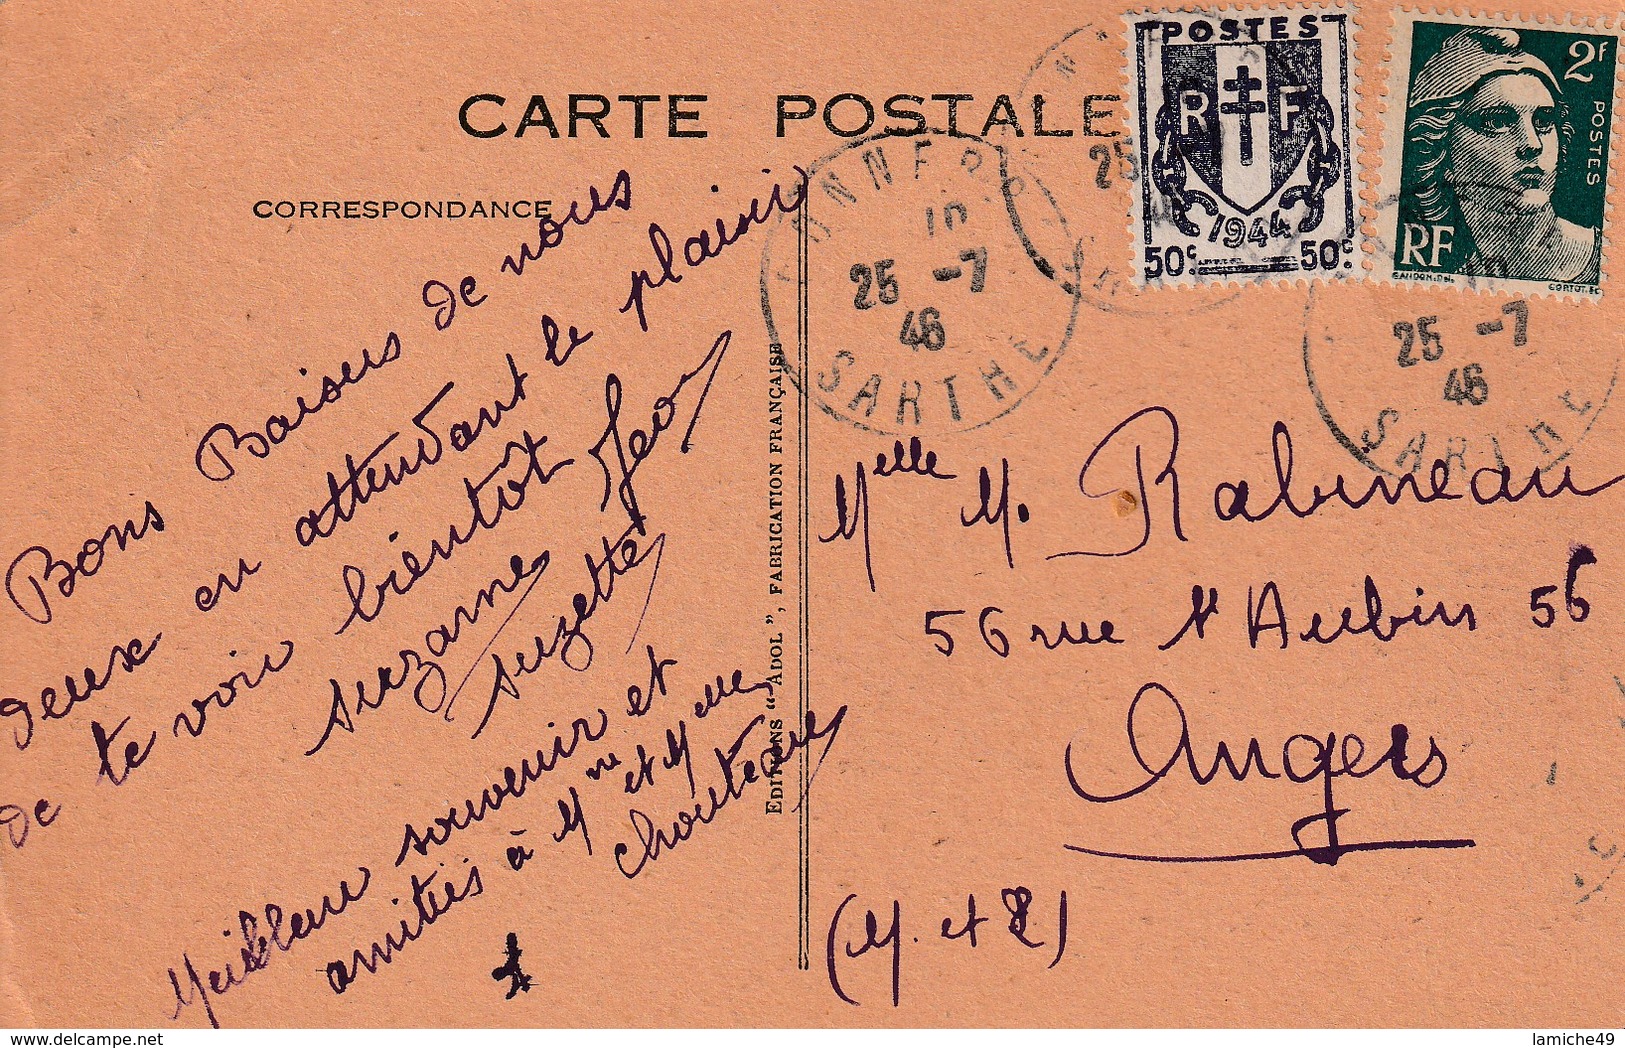 CARTE POSTALE
CORRESPONDANCE
Bons Baisers de nous
deux en attendant le plaisir
de te voir bientôt
Suzanne
Suzette
Meilleur souvenir et
amitiés à Mr et Melle
Chouteau
EDITIONS "ADOL", FABRICATION FRANÇAISE
ONNER
10
25 -7
46
SARTHE
25
POSTES
RF
1944
50c. 50c.
2F
POSTES
RF
GANDON.DEL. CORTOT.SC
10
25 -7
46
SARTHE
Melle M. Rabineau
56 rue St Aubin 56
Angers
(M. et L)
www.delcampe.net
lamiche49